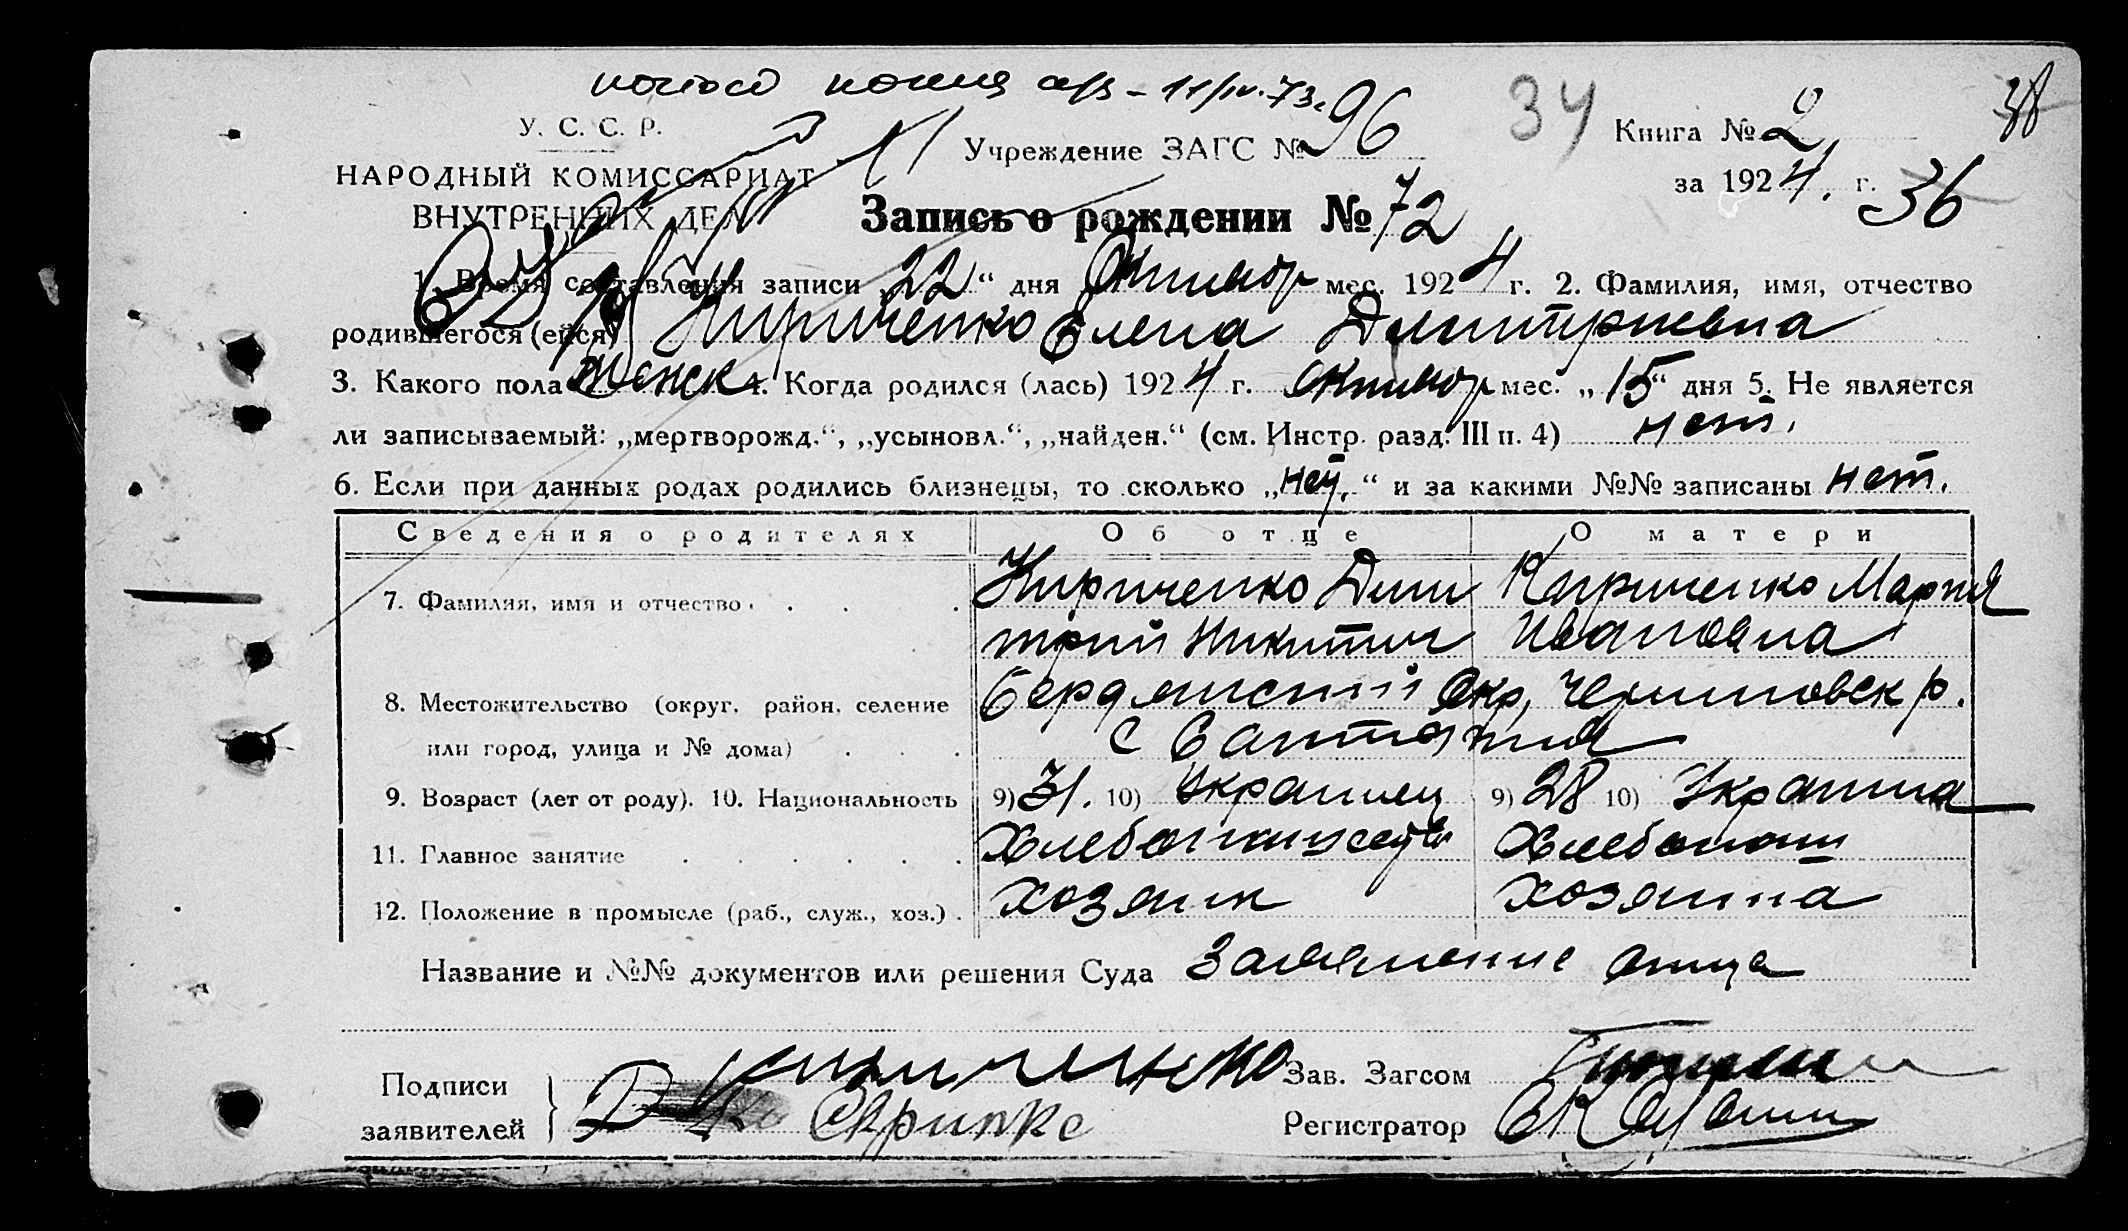 34 Книга № 2 38
У. С. С. Р. Учреждение ЗАГС № 96
НАРОДНЫЙ КОМИССАРИАТ за 1924 г. 36
ВНУТРЕННИХ ДЕЛ Запись о рождении № 72
1. Время составления записи „22“ дня Октябр мес. 1924 г. 2. Фамилия, имя, отчество
родившегося (ейся) Кириченко Елена Дмитриевна
3. Какого пола женск 4. Когда родился (лась) 1924 г. октябр мес. „15“ дня 5. Не является
ли записываемый: „мертворожд.“, „усыновл.“, „найден.“ (см. Инстр. разд. III п. 4) нет.
6. Если при данных родах родились близнецы, то сколько „нет.“ и за какими №№ записаны нет.
Сведения о родителях Об отце О матери
7. Фамилия, имя и отчество . . . Кириченко Дми Кириченко Мария
трий Никитич Ивановна
8. Местожительство (округ, район, селение Бердянский Окр,
или город, улица и № дома) . . . с
9. Возраст (лет от роду). 10. Национальность 9) 31. 10) Украинец 9) 28 10) Украинка
11. Главное занятие . . . . . .
12. Положение в промысле (раб., служ., хоз.) . хозяин хозяйка
Название и №№ документов или решения Суда Заявление отца
Подписи Д Кириченко Зав. Загсом
заявителей Скрипка Регистратор